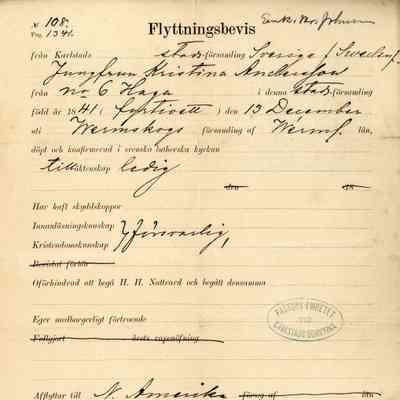 № 108.
Pag. 1341.
Enk. Mr. Johnson
Flyttningsbevis
från Karlstads stads-församling Sverige (Sweden).
Jungfrun Kristina Andersson
från No 6 Haga i denna stads-församling
född år 1841 (fyrtioett) den 13 December
uti Wermskogs församling af Werml. län,
döpt och konfirmerad i svenska lutherska kyrkan
till äktenskap ledig
den 18
Har haft skyddskoppor
Innanläsningskunskap } försvarlig,
Kristendomskunskap
Bevistat förhör
Oförhindrad att begå H. H. Nattvard och begått densamma
Eger medborgerligt förtroende
Fullgjort årets vapenöfning
PASTORS EMBETET
CARLSTADS DOMKYRKA
Afflyttar till N. Amerika förug af län